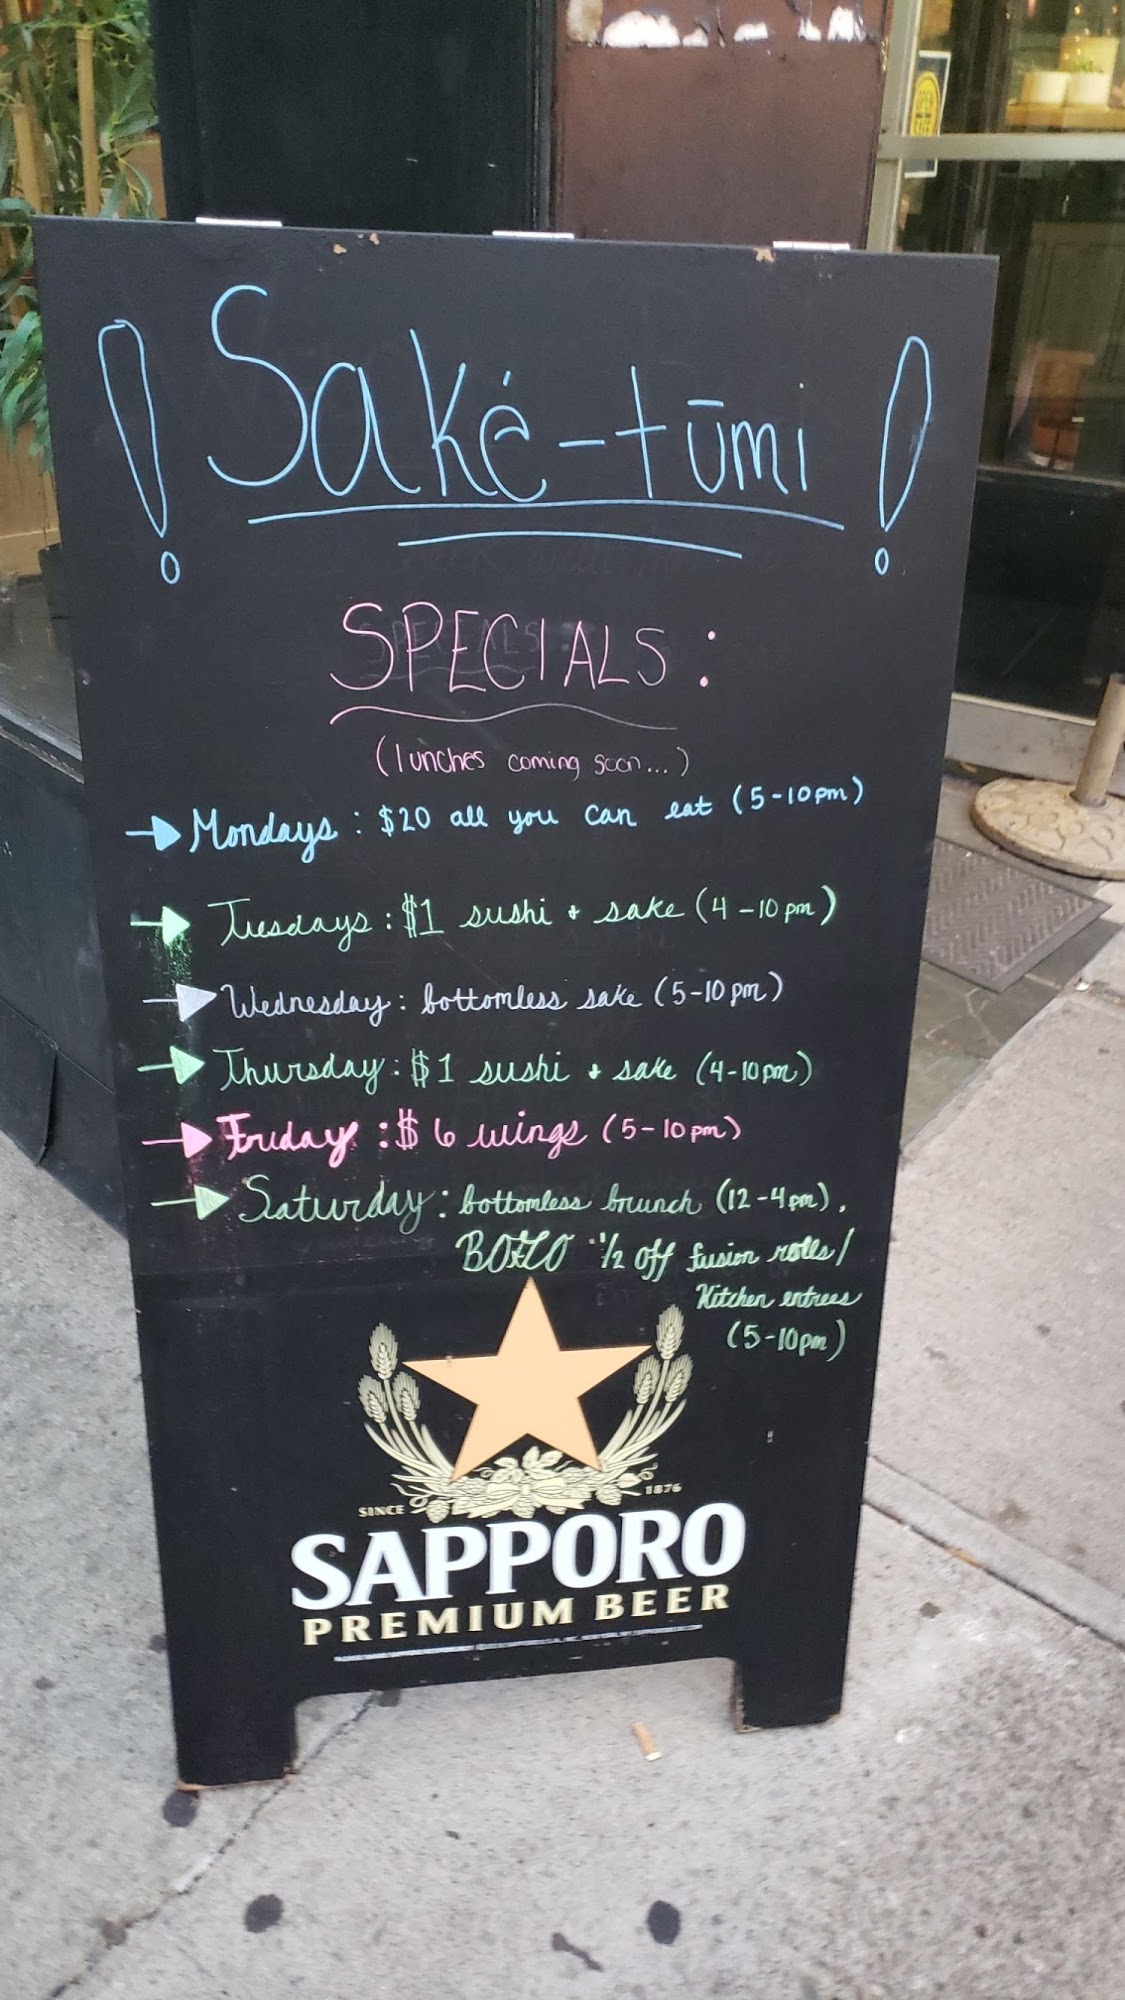 ! Saké-tūmi !
SPECIALS:
(lunches coming soon...)
Mondays: $20 all you can eat (5-10pm)
Tuesdays: $1 sushi + sake (4-10pm)
Wednesday: bottomless sake (5-10pm)
Thursday: $1 sushi + sake (4-10pm)
Friday: $6 wings (5-10pm)
Saturday: bottomless brunch (12-4pm),
1/2 off fusion rolls/
Kitchen entrees
(5-10pm)
SINCE 1876
SAPPORO
PREMIUM BEER